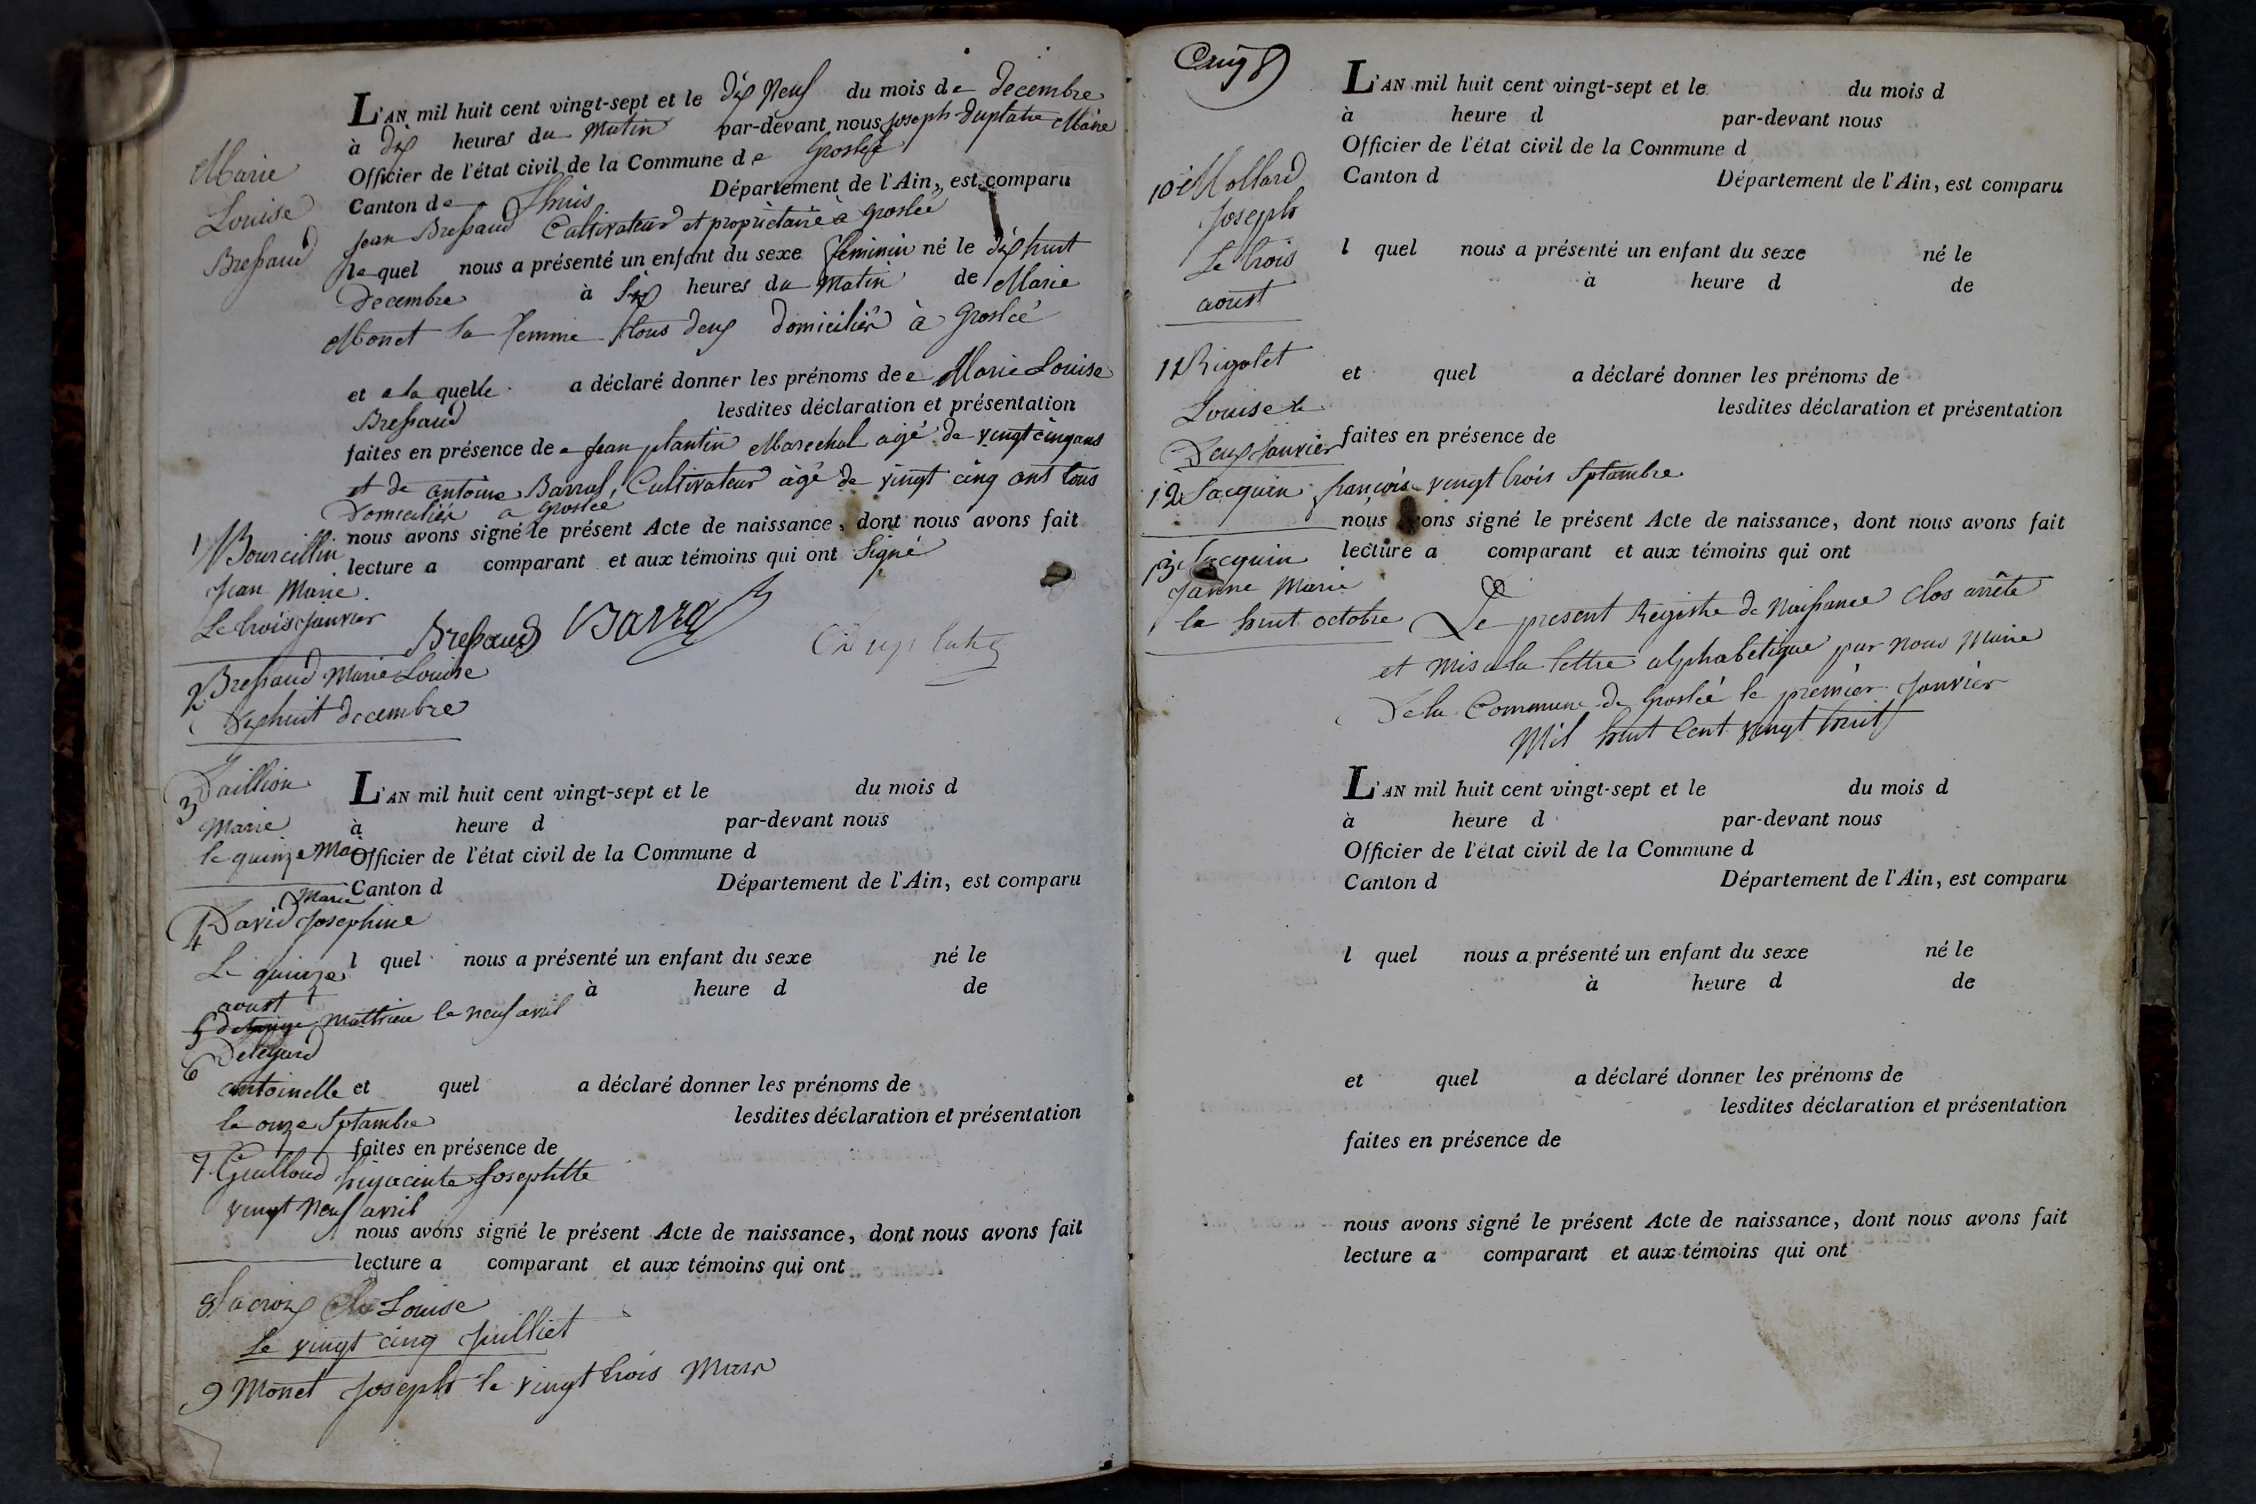 Marie
Louise
Bressaud
L'AN mil huit cent vingt-sept et le dix neuf du mois de decembre
à dix heures du Matin par-devant nous joseph Duplatre Maire
Officier de l'état civil de la Commune de Groslée
Canton de Lhuis Département de l'Ain, est comparu
jean Bressaud Cultivateur et propriètaire à groslée
le quel nous a présenté un enfant du sexe feminin né le dix huit
Decembre à six heures du Matin de Marie
Monet sa femme tous deux domiciliés à Groslée
et a la quelle a déclaré donner les prénoms de Marie Louise
Bressaud lesdites déclaration et présentation
faites en présence de jean plantin Marechal agé de vingt cinq ans
et de antoine Barral, Cultivateur agé de vingt cinq ans tous
Domiciliés a groslée
nous avons signé le présent Acte de naissance, dont nous avons fait
lecture a comparant et aux témoins qui ont signé
Bressaud Barral
1 Bourcillin
Jean Marie
Le trois janvier
2 Bressaud Marie Louise
Dix huit decembre
3 Daillion
Marie
le quinze Mai
L'AN mil huit cent vingt-sept et le du mois d
à heure d par-devant nous
Officier de l'état civil de la Commune d
Canton d Département de l'Ain, est comparu
4 David Marie Josephine
Le quinze
aoust
l quel nous a présenté un enfant du sexe né le
à heure d de
5 Mathieu le neuf avril
6 antoinette
le onze Septambre
et quel a déclaré donner les prénoms de
lesdites déclaration et présentation
faites en présence de
7 Guilloud hiyacinte Josephtte
vingt neuf avril
nous avons signé le présent Acte de naissance, dont nous avons fait
lecture a comparant et aux témoins qui ont
8 Lacroix Louise
Le vingt cinq juilliet
9 Monet Joseph le vingt trois Mars
10 Mollard
joseph
Le trois
aoust
11 Rigolet
Louise le
Deux janvier
L'AN mil huit cent vingt-sept et le du mois d
à heure d par-devant nous
Officier de l'état civil de la Commune d
Canton d Département de l'Ain, est comparu
l quel nous a présenté un enfant du sexe né le
à heure d de
et quel a déclaré donner les prénoms de
lesdites déclaration et présentation
faites en présence de
12 Jacquin françois vingt trois Septambre
nous avons signé le présent Acte de naissance, dont nous avons fait
lecture a comparant et aux témoins qui ont
13 Jacquin
Janne Marie
le huit octobre
Le present Registre de Naissance Clos arrête
et mis a la lettre alphabetique par nous Maire
De la Commune de Groslée le premier Janvier
Mil huit Cent vingt huit
L'AN mil huit cent vingt-sept et le du mois d
à heure d par-devant nous
Officier de l'état civil de la Commune d
Canton d Département de l'Ain, est comparu
l quel nous a présenté un enfant du sexe né le
à heure d de
et quel a déclaré donner les prénoms de
lesdites déclaration et présentation
faites en présence de
nous avons signé le présent Acte de naissance, dont nous avons fait
lecture a comparant et aux témoins qui ont